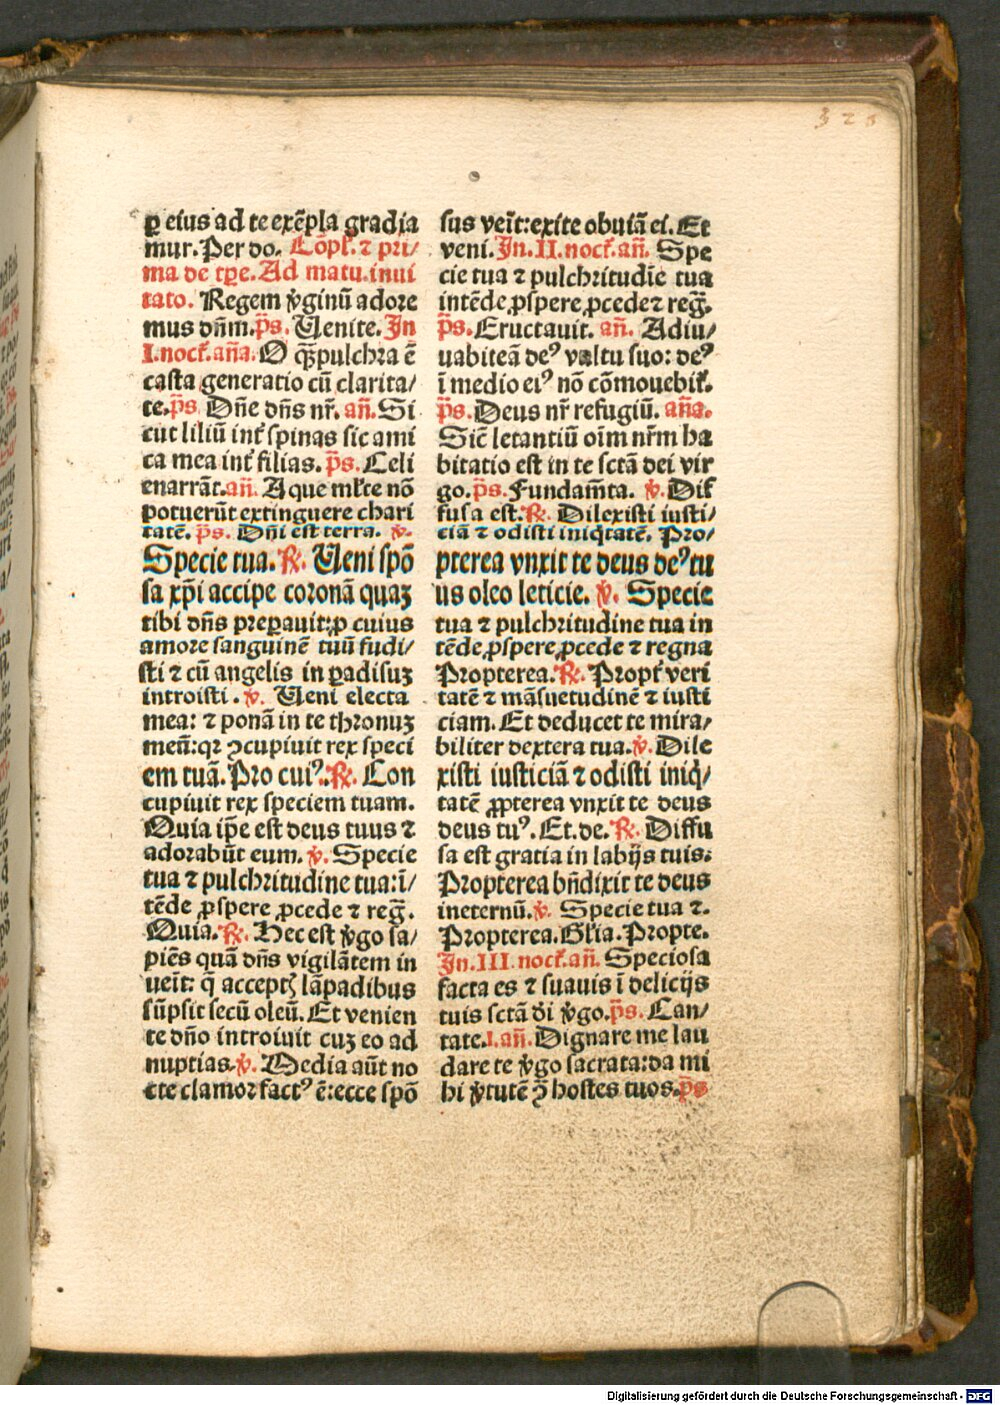 325
ꝑ eius ad te exēpla gradia
mur. Per do. Cōpl'. ⁊ pri/
ma de tꝑe. Ad matu. inui
tato. Regem v̾ginū adore
mus dn̄m. p̄s. Uenite. In
I. noct̾. an̄a. O q̄ꝫ pulchra ē
casta generatio cū clarita/
te. p̄s. Dn̄e dn̄s nr̄. an̄. Si
cut liliū int̾ spinas sic ami
ca mea int̾ filias. p̄s. Celi
enarrāt. an̄. Aque ml'te nō
potuerūt extinguere chari
tatē. p̄s. Dn̄i est terra. v̾.
Specie tua. ℞. Ueni spō
sa xp̄i accipe coronā quaꝫ
tibi dn̄s preꝑauit: ꝓ cuius
amore sanguinē tuū fudi/
sti ⁊ cū angelis in ꝑadisuꝫ
introisti. v̾. Ueni electa
mea: ⁊ ponā in te thronuꝫ
meū: qꝛ ꝯcupiuit rex speci
em tuā. Pro cuiꝰ. ℞. Con
cupiuit rex speciem tuam.
Quia ip̄e est deus tuus ⁊
adorabūt eum. v̾. Specie
tua ⁊ pulchritudine tua: ī/
tēde ꝓspere ꝓcede ⁊ reḡ.
Quia. ℞. Hec est v̾go sa/
piēs quā dn̄s vigilātem in
ueīt: q̄ acceptꝭ lāpadibus
sūpsit secū oleū. Et venien
te dn̄o introiuit cuꝫ eo ad
nuptias. v̾. Media aūt no
cte clamor factꝰ ē: ecce spō
sus veīt: exite obuiā ei. Et
veni. In. II. noct̾. an̄. Spe
cie tua ⁊ pulchritudīe tua
intēde ꝓspere ꝓcede ⁊ reḡ.
p̄s. Eructauit. an̄. Adiu/
uabit eā deꝰ vultu suo: deꝰ
ī medio eiꝰ nō cōmouebit̾.
p̄s. Deus nr̄ refugiū. an̄a.
Sic̄ letantiū oīm nr̄m ha
bitatio est in te sctā dei vir
go. p̄s. Fundam̄ta. v̾. Dif
fusa est. ℞. Dilexisti iusti/
ciā ⁊ odisti iniq̇tatē. Pro/
pterea vnxit te deus deꝰ tu
us oleo leticie. v̾. Specie
tua ⁊ pulchritudine tua in
tēde ꝓspere ꝓcede ⁊ regna
Propterea. ℞. Propt̾ veri
tatē ⁊ māsuetudinē ⁊ iusti
ciam. Et deducet te mira/
biliter dextera tua. v̾. Dile
xisti iusticiā ⁊ odisti iniq̇/
tatē ꝓpterea vnxit te deus
deus tuꝰ. Et. de. ℞. Diffu
sa est gratia in labijs tuis:
Propterea bn̄dixit te deus
in eternū. v̾. Specie tua ⁊.
Propterea. Gl'ia. Propte.
In. III. noct̾. an̄. Speciosa
facta es ⁊ suauis ī delicijs
tuis sctā di v̾go. p̄s. Can/
tate. I. an̄. Dignare me lau
dare te v̾go sacrata: da mi
hi v̾tutē ꝯ̄ hostes tuos. p̄s
Digitalisierung gefördert durch die Deutsche Forschungsgemeinschaft - DFG